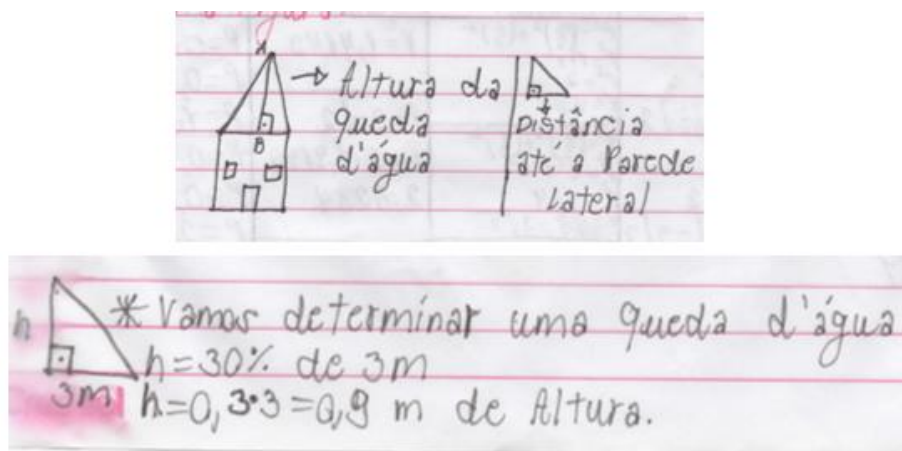 A
→ Altura da
queda
d'água
B
Distância
até a Parede
Lateral
* Vamos determinar uma queda d'água
h
h=30% de 3m
3m
h=0,3•3=0,9 m de Altura.